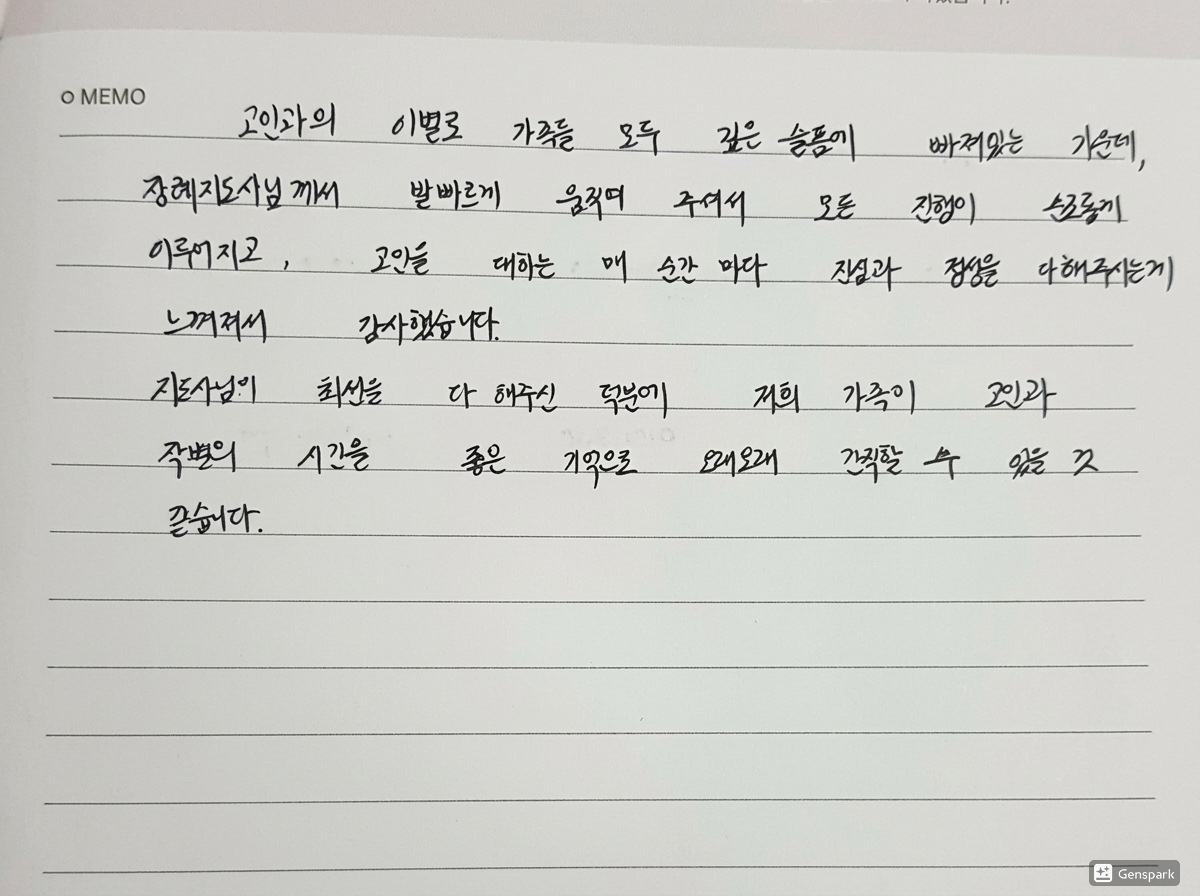 MEMO
고인과의 이별로 가족들 모두 깊은 슬픔에 빠져있는 가운데,
장례지도사님께서 발빠르게 움직여 주셔서 모든 진행이 순조롭게
이루어지고, 고인을 대하는 매 순간 마다 진심과 정성을 다해주시는게
느껴져서 감사했습니다.
지도사님의 최선을 다 해주신 덕분에 저희 가족이 고인과
작별의 시간을 좋은 기억으로 오래오래 간직할 수 있을 것
같습니다.
Genspark